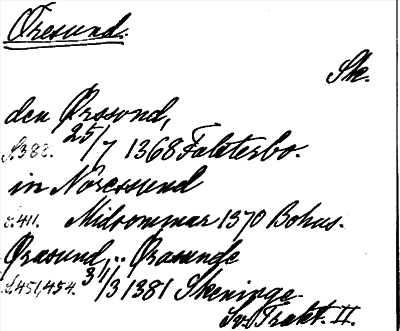 Øresund.
Sk.
den Ørssond,
S.382. 25/7 1368 Falsterbo.
in Nörcssund
S.411. Midsommar 1370 Bohus.
Ørasund, .. Ørasunde
S.451,454. 31/3 1381 Skeninge
Sv. Trakt. II.